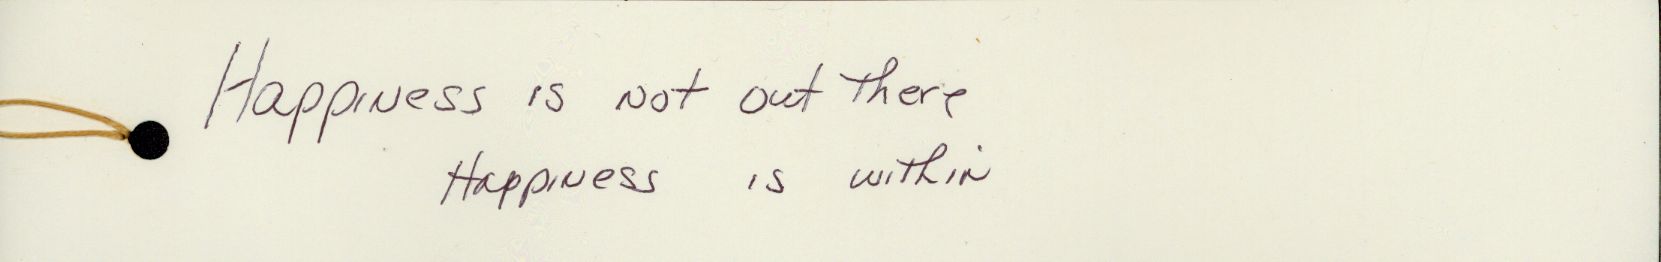 Happiness is not out there
Happiness is within